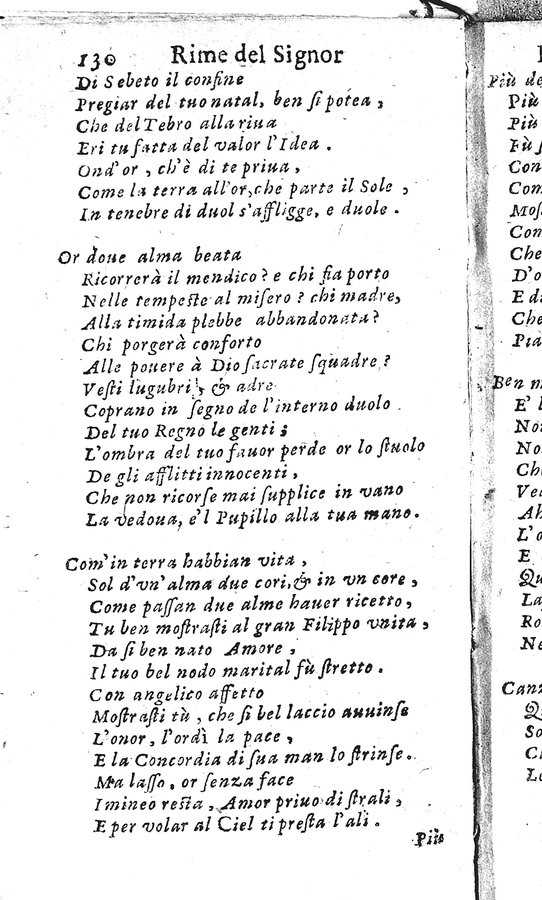 130 Rime del Signor
Di Sebeto il confine
Pregiar del tuo natal, ben ſi potea,
Che del Tebro alla riua
Eri tu fatta del valor l'Idea.
Ond'or, ch'è di te priua,
Come la terra all'or, che parte il Sole,
In tenebre di duol s'affligge, e duole.
Or doue alma beata
Ricorrerà il mendico? e chi fia porto
Nelle tempeſte al miſero? chi madre,
Alla timida plebbe abbandonata?
Chi porgerà conforto
Alle pouere à Dio ſacrate ſquadre?
Veſti lugubri, & adre
Coprano in ſegno de l'interno duolo
Del tuo Regno le genti;
L'ombra del tuo fauor perde or lo ſtuolo
De gli afflitti innocenti,
Che non ricorſe mai ſupplice in vano
La vedoua, e'l Pupillo alla tua mano.
Com'in terra habbian vita,
Sol d'vn'alma due cori, & in vn core,
Come paſſan due alme hauer ricetto,
Tu ben moſtraſti al gran Filippo vnita,
Da ſi ben nato Amore,
Il tuo bel nodo marital fù ſtretto.
Con angelico affetto
Moſtraſti tù, che ſi bel laccio auuinſe
L'onor, l'ordì la pace,
E la Concordia di ſua man lo ſtrinſe.
Ma laſſo, or ſenza face
Imineo reſta, Amor priuo di ſtrali,
E per volar al Ciel ti preſta l'ali.
Più
Più de
Più
Più
Con
Com
Moſ
Con
Che
D'o
E d
Che
Ben m
E' l
Non
No
Ch
Ve
Ah
L'o
E
Qu
La
Ro
Ne
Canz
So